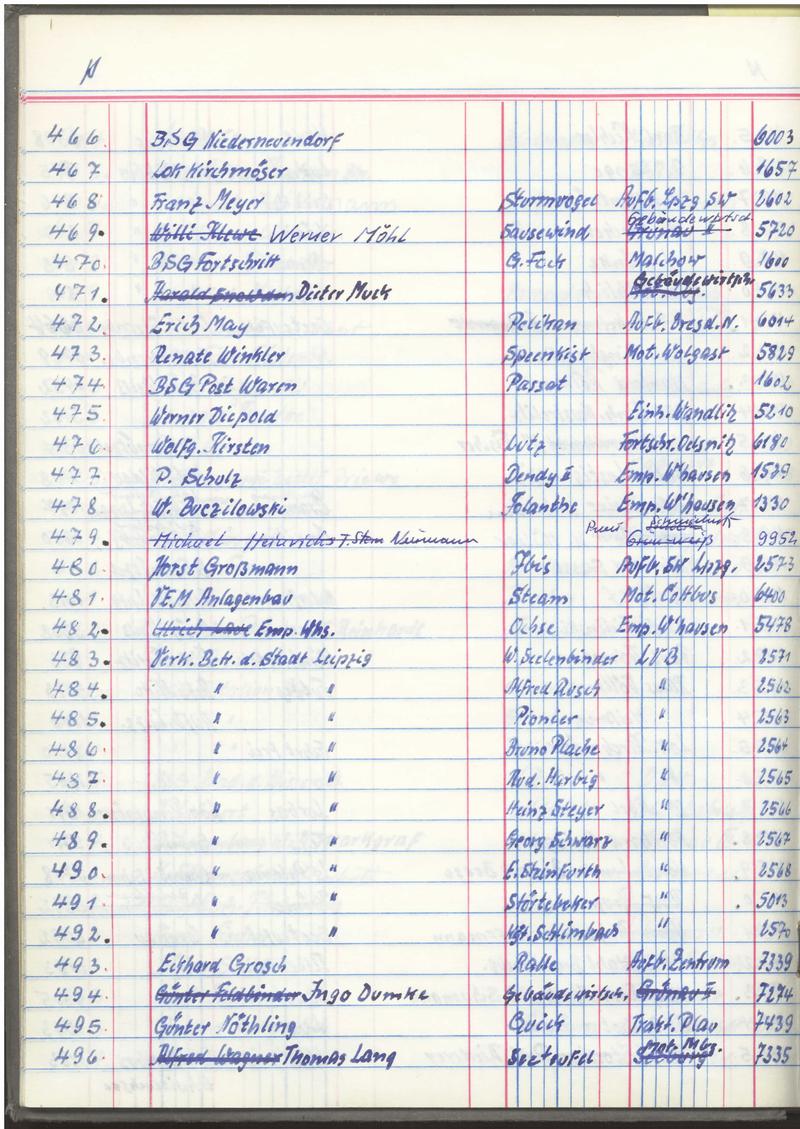 466. BSG Niederneuendorf 6003
467 Lok Kirchmöser 1657
468 Franz Meyer Sturmvogel Aufb. Lpzg SW 2602
469. Willi Klewe Werner Möhl Sausewind Grünau II 5720
470. BSG Fortschritt G. Fock Malchow 1600
471. Harald Dieter Muck Gebäudewirtsch. 5633
472. Erich May Pelikan Aufb. Dresd. N. 6014
473. Renate Winkler Speenkist Mot. Wolgast 5829
474. BSG Post Waren Passat 1602
475 Werner Diepold Einh. Wandlitz 5210
476 Wolfg. Kirsten Lutz Fortschr. Oelsnitz 6180
477 P. Schulz Dendy II Emp. W'hausen 1529
478 W. Buczilowski Jolanthe Emp. W'hausen 1330
479. Michael Heinrichs T. Sten Neumann Grün-weiß 9952
480 Horst Großmann Ibis Aufb. SW Lpzg. 2573
481. VEM Anlagenbau Steam Mot. Cottbus 6400
482. Ulrich Emp. Whs. Ochse Emp. W'hausen 5478
483. Verk. Betr. d. Stadt Leipzig W. Seelenbinder LVB 2571
484. " " Alfred Rosch " 2562
485. " " Pionier " 2563
486 " " Bruno Plache " 2564
487. " " Rud. Harbig " 2565
488. " " Heinz Steyer " 2566
489. " " Georg Schwarz " 2567
490. " " E. Steinfurth " 2568
491 " " Störtebeker " 5013
492. " " " 2570
493. Ekhard Grosch Ralle Aufb. Zentrum 7339
494 Günter Feldbinder Ingo Dumke Gebäudewirtsch. Grünau II 7274
495 Günter Nöthling Quick Trakt. Plau 7439
496. Alfred Wagner Thomas Lang Seeteufel Mot. Mbg. 7335